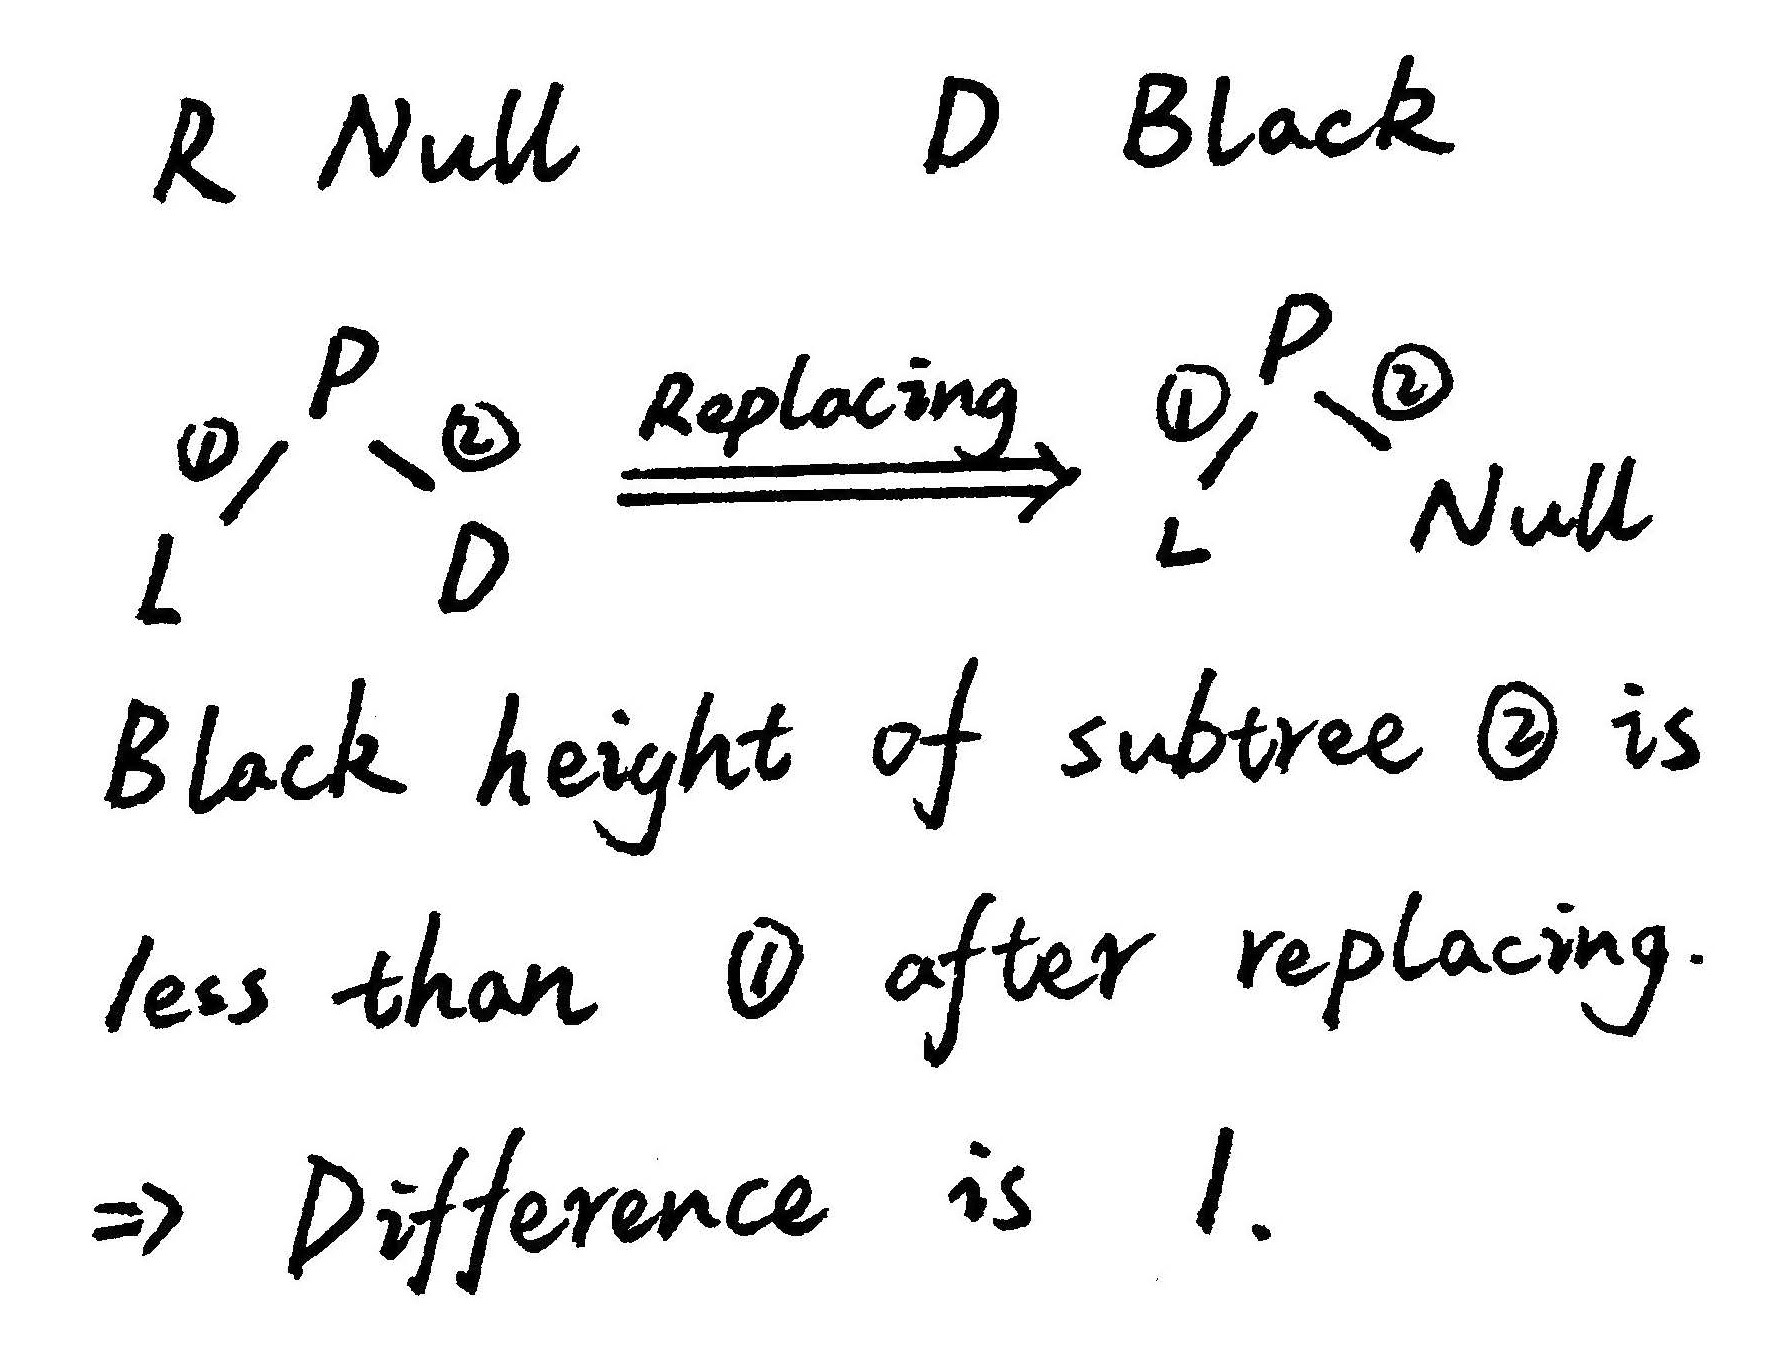 R Null D Black
P Replacing P
① ② ① ②
L D L Null
Black height of subtree ② is
less than ① after replacing.
⇒ Difference is 1.